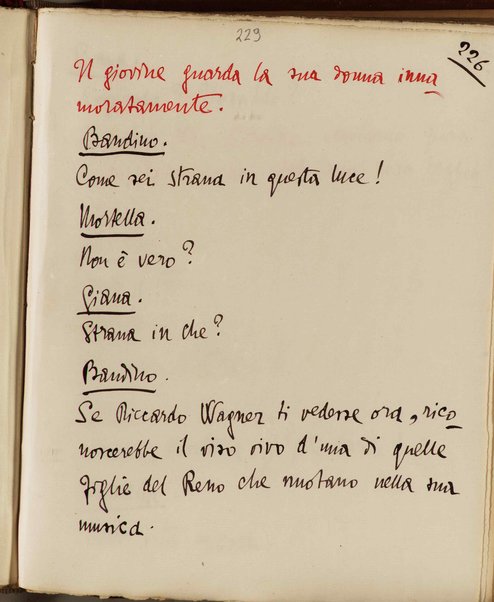 229
226
Il giovine guarda la sua donna inna
moratamente.
Bandino.
Come sei strana in questa luce!
Mortella.
Non è vero?
Giana.
Strana in che?
Bandino.
Se Riccardo Wagner ti vedesse ora, rico
noscerebbe il viso vivo d'una di quelle
figlie del Reno che nuotano nella sua
musica.